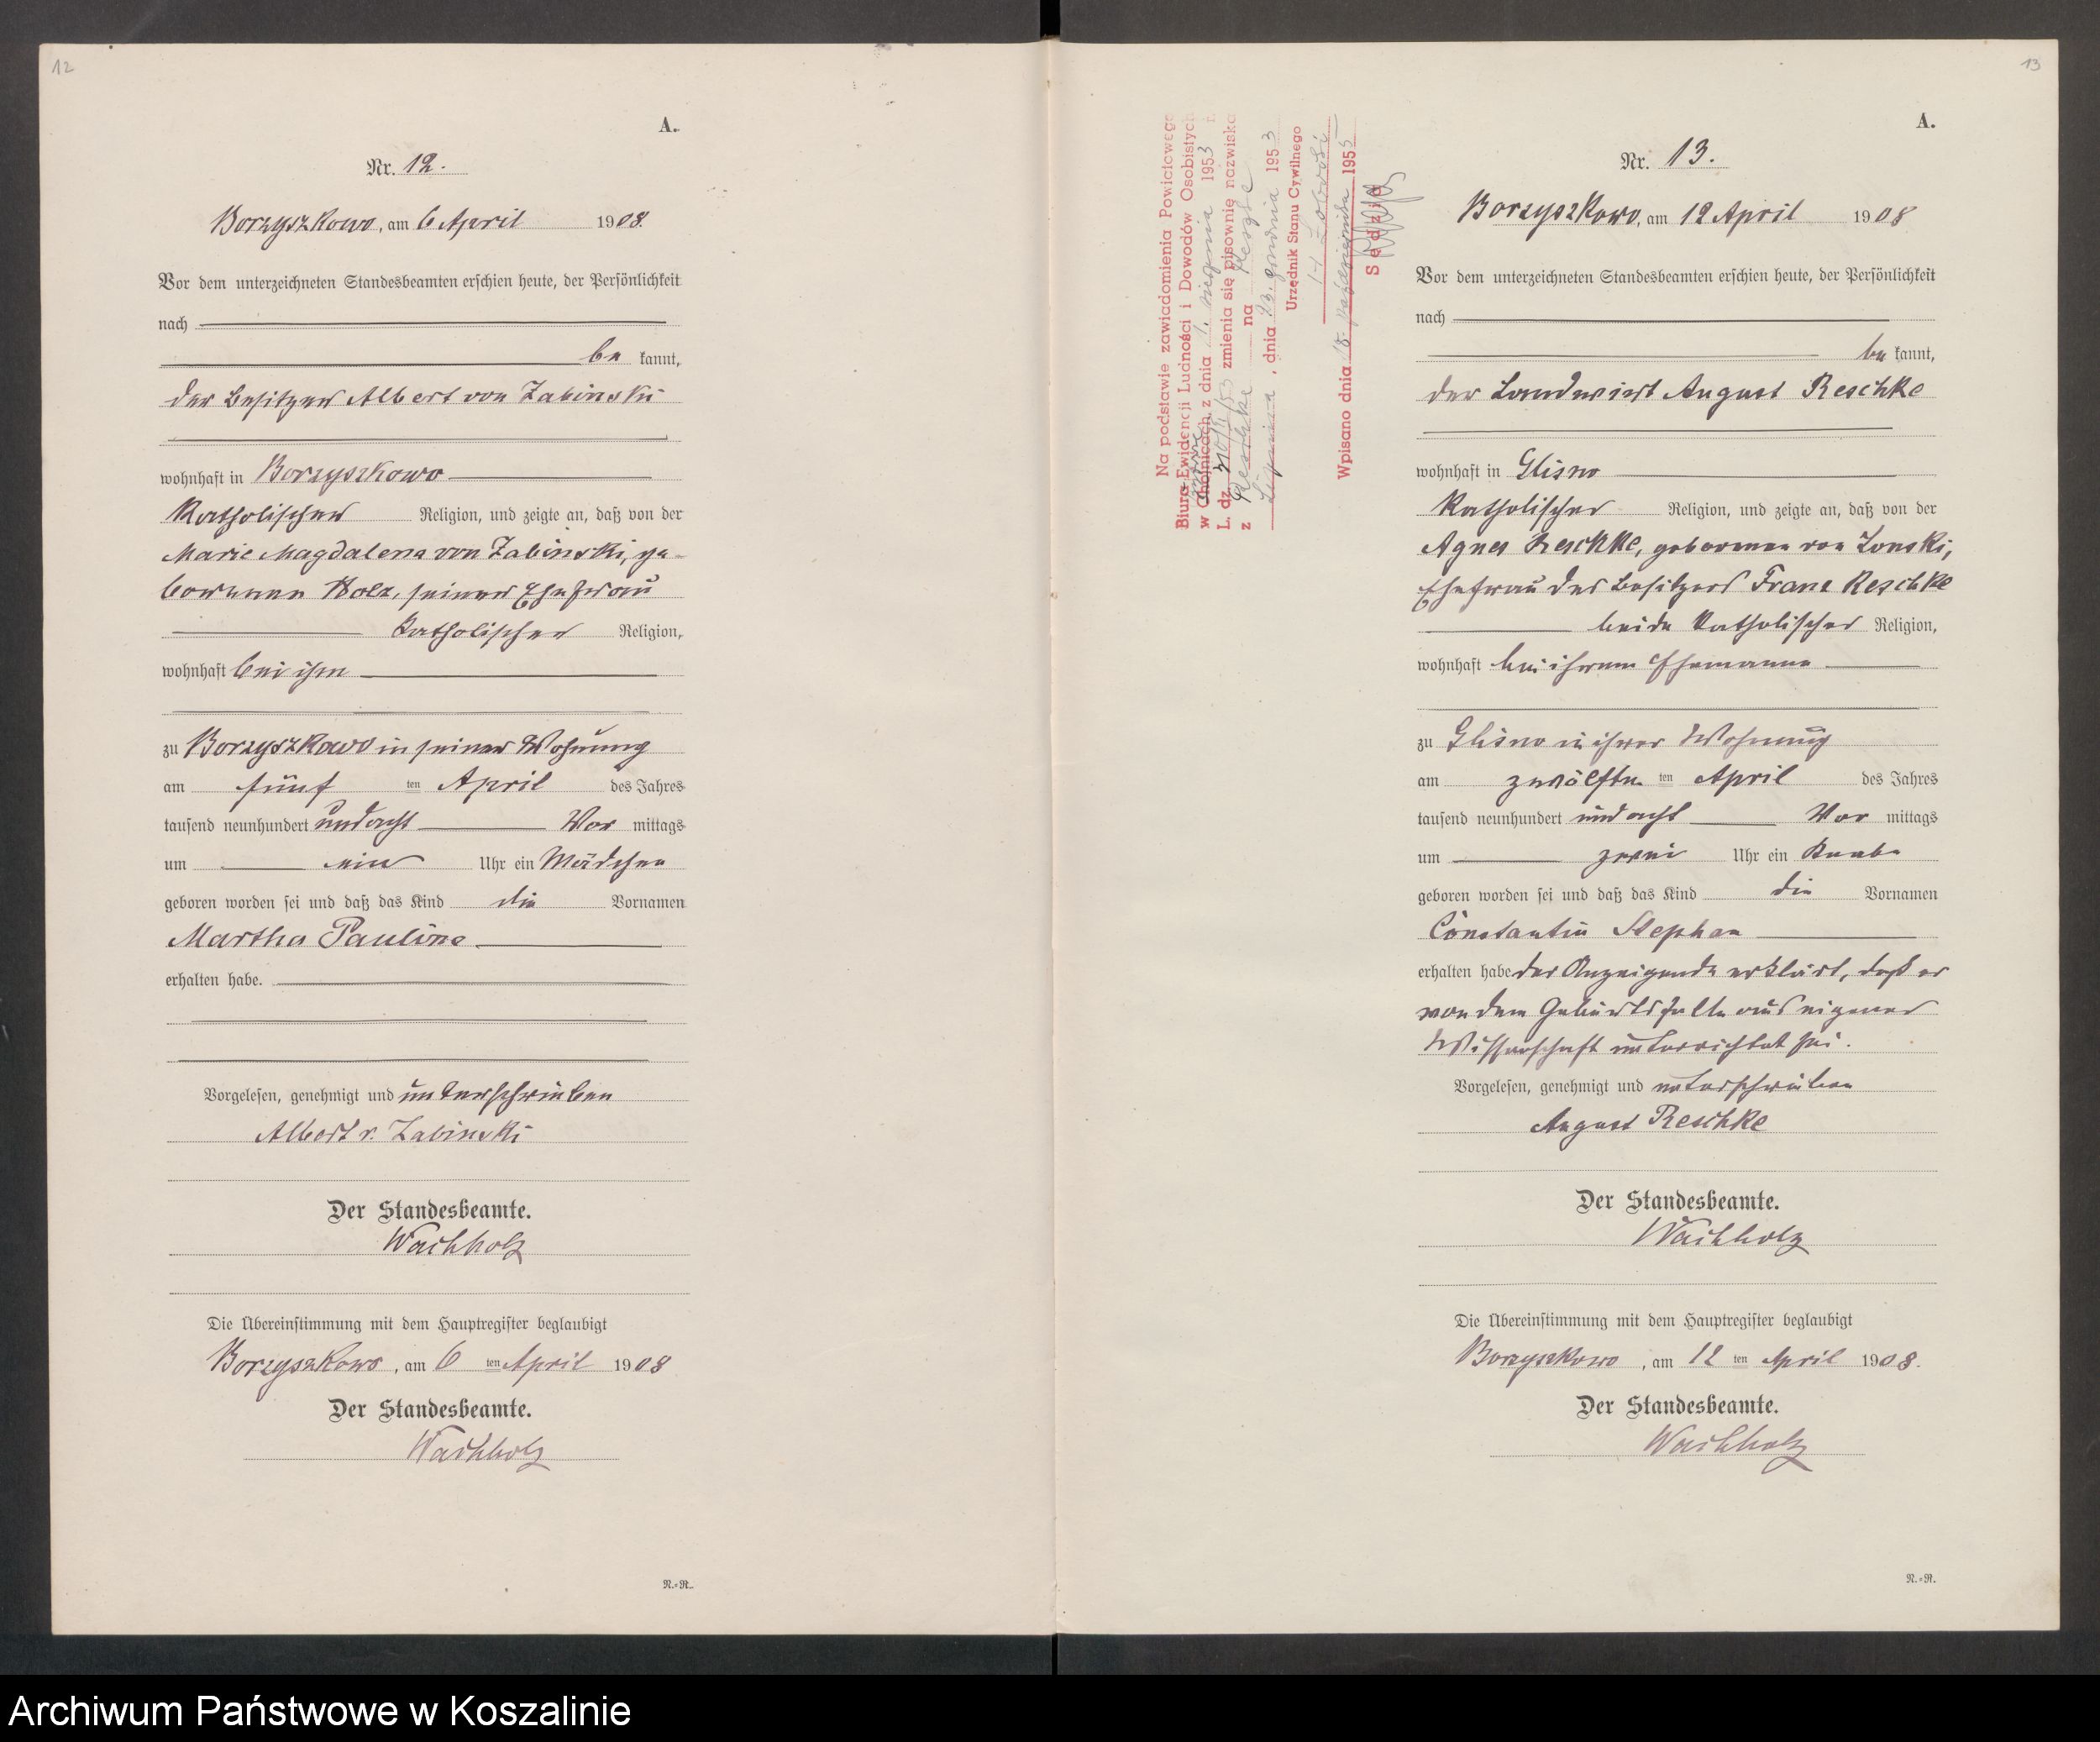 12
A.
Nr. 12.
Borzyszkowo, am 6 April 1908.
Vor dem unterzeichneten Standesbeamten erschien heute, der Persönlichkeit
nach
be kannt,
der Besitzer Albert von Zabinski
wohnhaft in Borzyszkowo
katholischer Religion, und zeigte an, daß von der
Marie Magdalena von Zabinski, ge-
borenen Wolz, seiner Ehefrau
katholischer Religion,
wohnhaft bei ihm
zu Borzyszkowo in seiner Wohnung
am fünf ten April des Jahres
tausend neunhundert und acht Vor mittags
um ein Uhr ein Mädchen
geboren worden sei und daß das Kind die Vornamen
Martha Pauline
erhalten habe.
Vorgelesen, genehmigt und unterschrieben
Albert v. Zabinski
Der Standesbeamte.
Wachholz
Die Übereinstimmung mit dem Hauptregister beglaubigt
Borzyszkowo, am 6 ten April 1908
Der Standesbeamte.
Wachholz
N.-R.
13
Na podstawie zawiadomienia Powiatowego
Biura Ewidencji Ludności i Dowodów Osobistych
w Chojnicach z dnia 1953 r.
L. dz. zmienia się pisownię nazwiska
z Reschke na Reszke
, dnia 23. grudnia 1953
Urzędnik Stanu Cywilnego
Wpisano dnia 18 października 1955
Sędzia
A.
Nr. 13.
Borzyszkowo, am 12 April 1908
Vor dem unterzeichneten Standesbeamten erschien heute, der Persönlichkeit
nach
be kannt,
der Landwirt August Reschke
wohnhaft in Glisno
katholischer Religion, und zeigte an, daß von der
Agnes Reschke, geborenen von Zonski,
Ehefrau des Besitzers Franz Reschke
beide katholischer Religion,
wohnhaft bei ihrem Ehemanne
zu Glisno in ihrer Wohnung
am zwölften ten April des Jahres
tausend neunhundert und acht Vor mittags
um zwei Uhr ein Knabe
geboren worden sei und daß das Kind die Vornamen
Constantin Stephan
erhalten habe der Anzeigende erklärt, daß er
von dem Geburtsfalle aus eigener
Wissenschaft unterrichtet sei.
Vorgelesen, genehmigt und unterschrieben
August Reschke
Der Standesbeamte.
Wachholz
Die Übereinstimmung mit dem Hauptregister beglaubigt
Borzyszkowo, am 12 ten April 1908.
Der Standesbeamte.
Wachholz
N.-R.
Archiwum Państwowe w Koszalinie